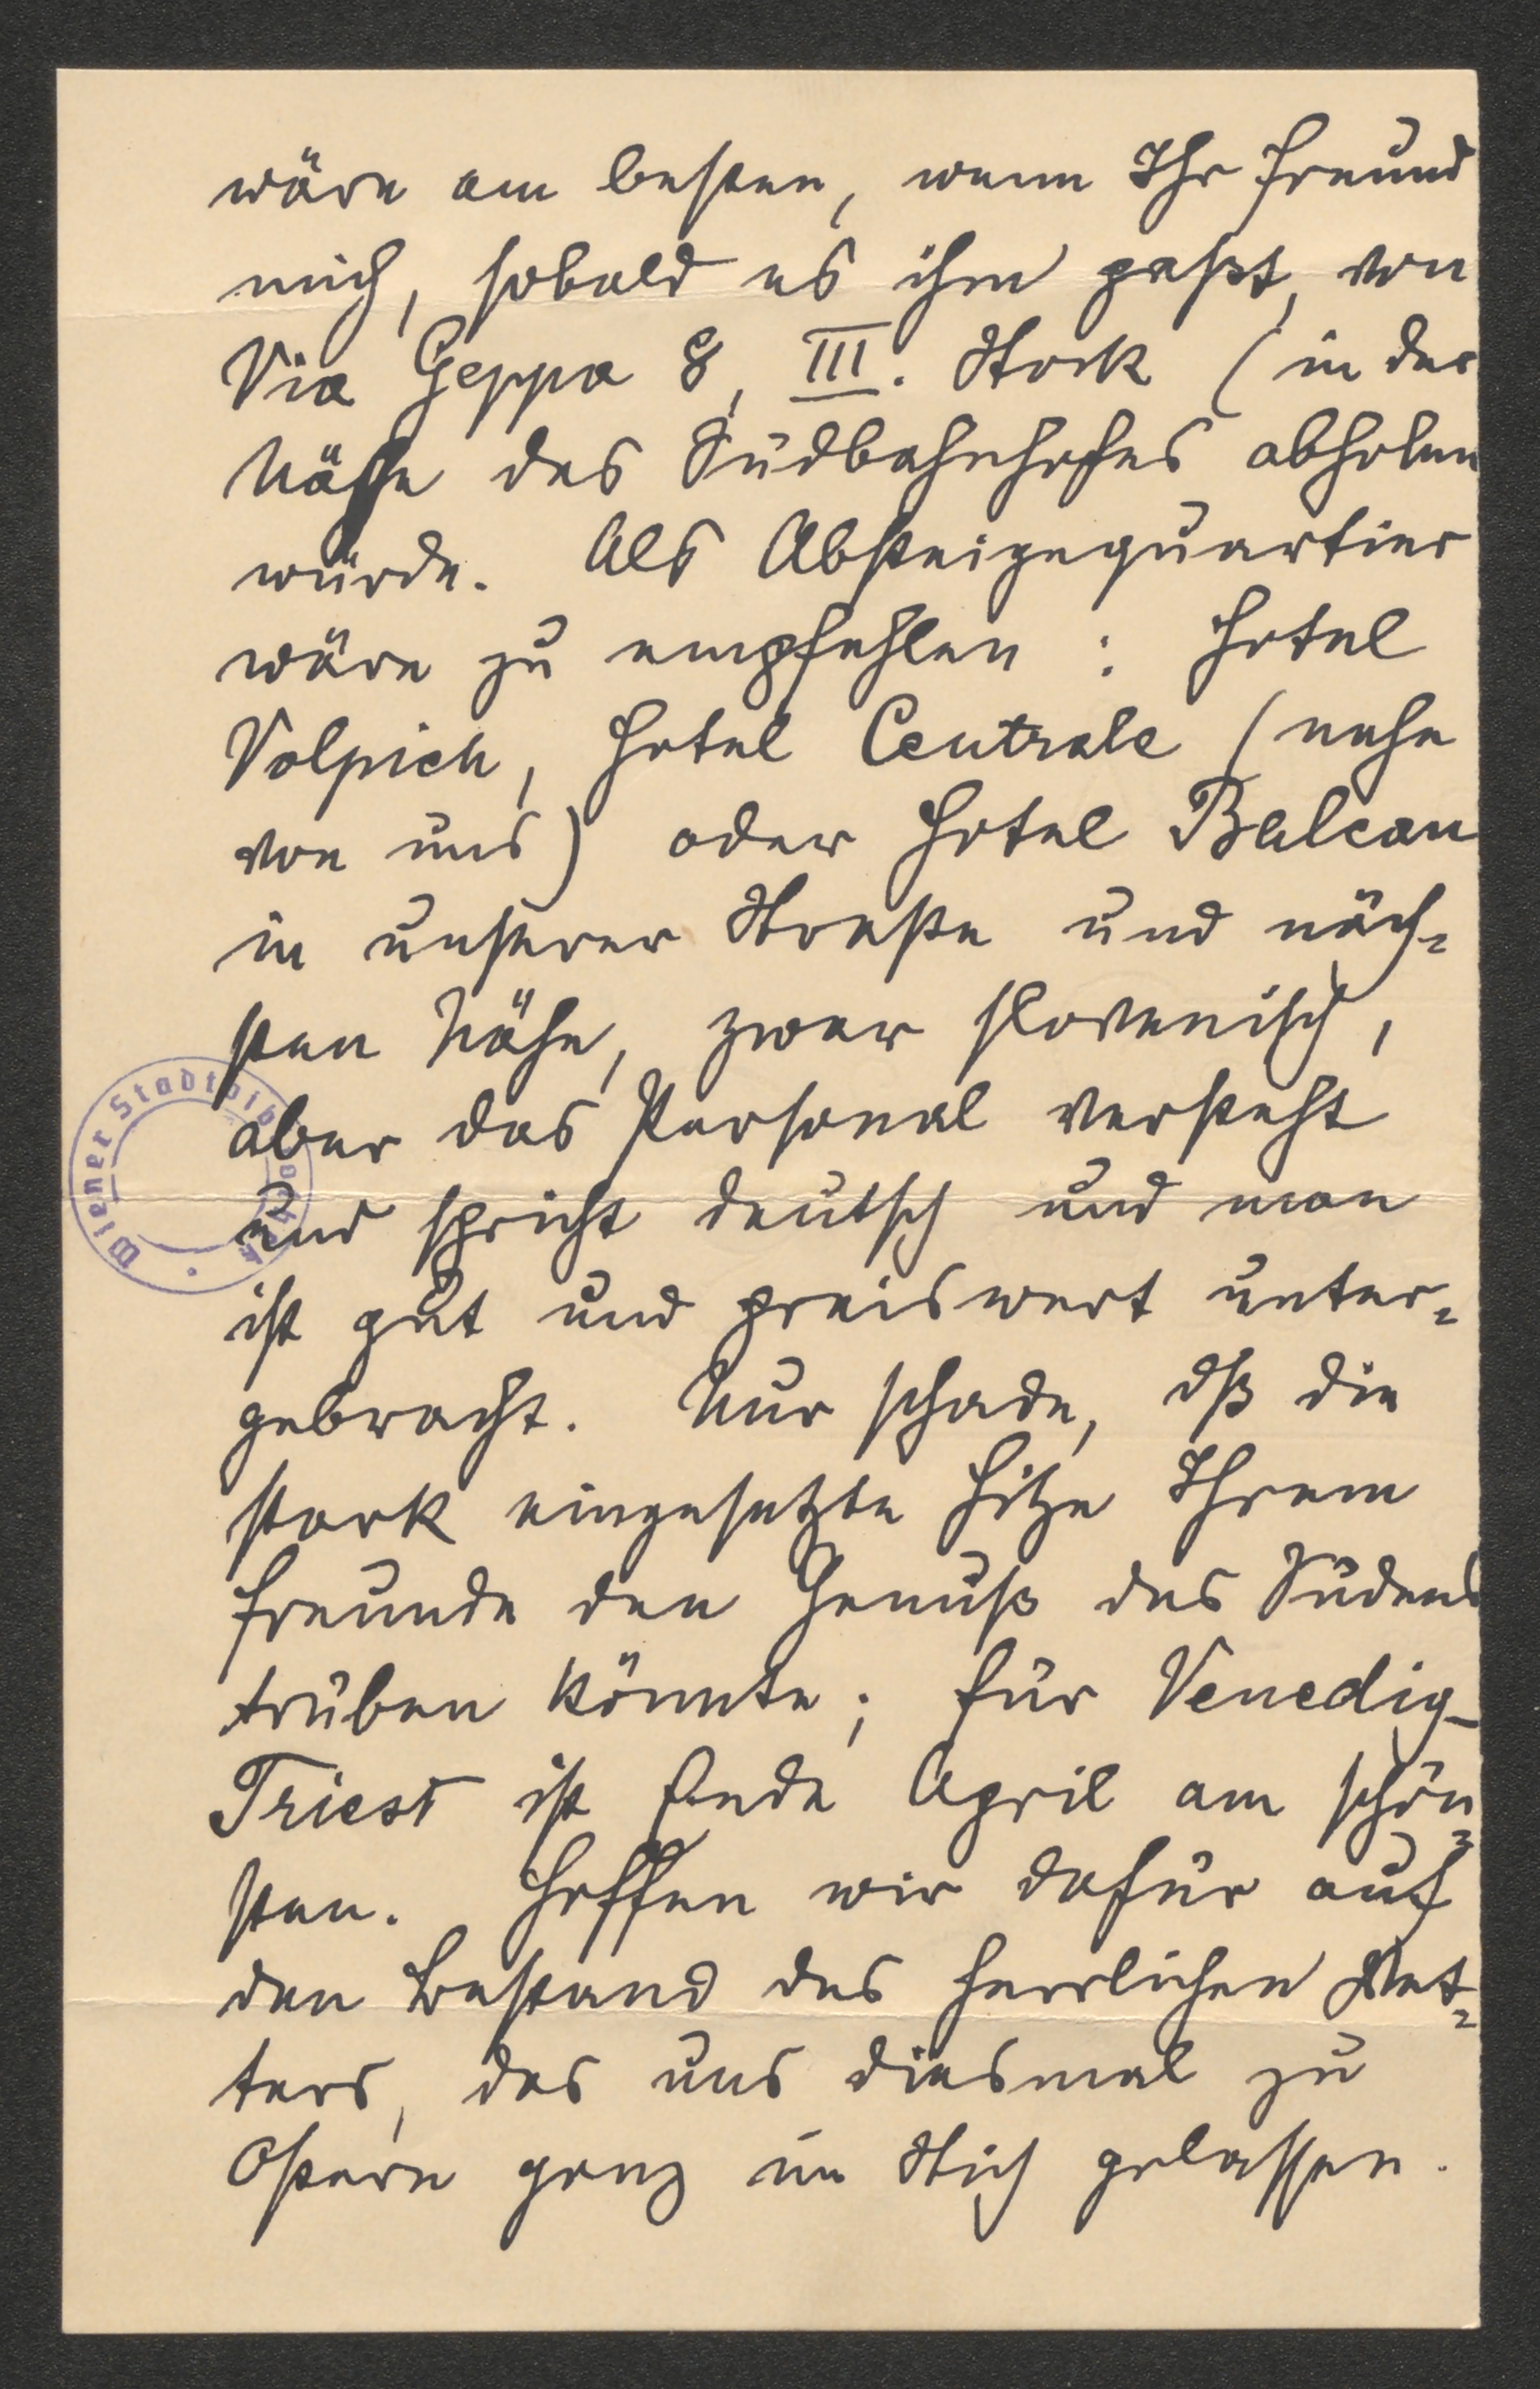 wäre am besten, wenn Ihr Freund
mich, sobald es ihm paßt, von
Via Geppa 8, III. Stock (in der
Nähe des Südbahnhofes abholen
würde. Als Absteigequartier
wäre zu empfehlen: Hotel
Volpich, Hotel Centrale (nahe
von uns) oder Hotel Balcan
in unserer Straße und näch-
sten Nähe, zwar slovenisch,
aber das Personal versteht
und spricht deutsch und man
ist gut und preiswert unter-
gebracht. Nur schade, dß die
stark eingesetzte Hitze Ihrem
Freunde den Genuß des Südens
trüben könnte; für Venedig-
Triest ist Ende April am schön-
sten. Hoffen wir dafür auf
den Bestand des herrlichen Wet-
ters, das uns diesmal zu
Ostern ganz im Stich gelassen.
Wiener Stadtbibliothek